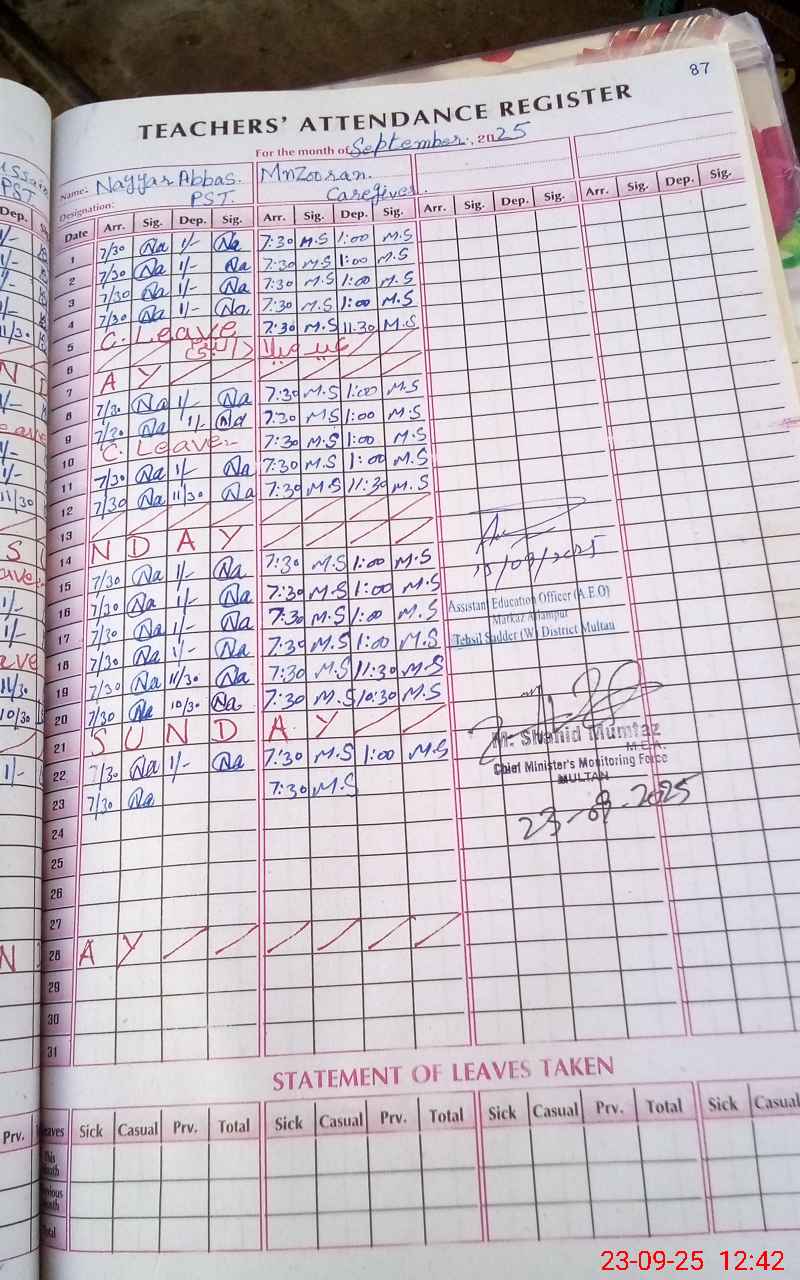 87
TEACHERS' ATTENDANCE REGISTER
For the month of September, 2025
Name: Nayyar Abbas. Mnzooran.
Designation: PST. Caregiver.
Date Arr. Sig. Dep. Sig. Arr. Sig. Dep. Sig. Arr. Sig. Dep. Sig. Arr. Sig. Dep. Sig.
1 7/30 Na 1/- Na 7:30 M.S 1:00 M.S
2 7/30 Na 1/- Na 7:30 M.S 1:00 M.S
3 7/30 Na 1/- Na 7:30 M.S 1:00 M.S
4 7/30 Na 1/- Na 7:30 M.S 1:00 M.S
5 C. Leave 7:30 M.S 11:30 M.S
6 عید میلاد
7 A Y
8 7/30 Na 1/- Na 7:30 M.S 1:00 M.S
9 7/30 Na 1/- Na 7:30 M.S 1:00 M.S
10 C. Leave- 7:30 M.S 1:00 M.S
11 7/30 Na 1/- Na 7:30 M.S 1:00 M.S
12 7/30 Na 11/30 Na 7:30 M.S 11:30 M.S
13
14 N D A Y
15 7/30 Na 1/- Na 7:30 M.S 1:00 M.S
16 7/30 Na 1/- Na 7:30 M.S 1:00 M.S
17 7/30 Na 1/- Na 7:30 M.S 1:00 M.S
18 7/30 Na 1/- Na 7:30 M.S 1:00 M.S
19 7/30 Na 11/30 Na 7:30 M.S 11:30 M.S
20 7/30 Na 10/30 Na 7:30 M.S 10:30 M.S
21 S U N D A Y
22 7/30 Na 1/- Na 7:30 M.S 1:00 M.S
23 7/30 Na 7:30 M.S
24
25
26
27
28 A Y
29
30
31
15/09/2025
Assistant Education Officer (A.E.O)
Markaz
Tehsil Sadder (W) District Multan
Mr. Shahid Mumtaz
M.E.A.
Chief Minister's Monitoring Force
MULTAN
23-09-2025
STATEMENT OF LEAVES TAKEN
Leaves Sick Casual Prv. Total Sick Casual Prv. Total Sick Casual Prv. Total Sick Casual
This month
Previous month
Total
23-09-25 12:42